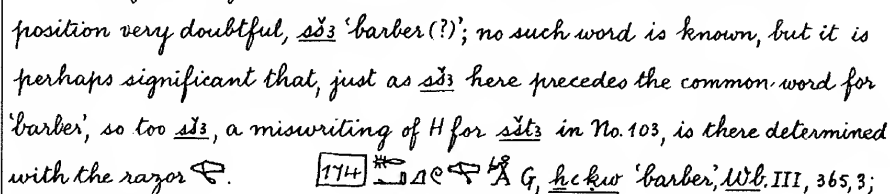 position very doubtful, sšꜣ ‘barber(?)’; no such word is known, but it is
perhaps significant that, just as sšꜣ here precedes the common word for
‘barber’, so too sšꜣ, a miswriting of H for sštꜣ in No. 103, is there determined
with the razor . 174 G, ẖꜥḳw ‘barber’, Wb. III, 365, 3;